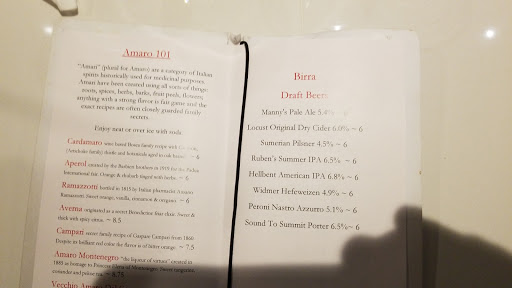 Amaro 101
"Amari" (plural for Amaro) are a category of Italian
spirits historically used for medicinal purposes.
Amari have been created using all sorts of things:
roots, spices, herbs, barks, fruit peels, flowers;
anything with a strong flavor is fair game and the
exact recipes are often closely guarded family
secrets.
Enjoy neat or over ice with soda
Cardamaro wine based Bosca family recipe with
(Artichoke family) thistle and botanicals aged in oak ~ 6
Aperol created by the Barbieri brothers in 1919 for the Padua
International fair. Orange & rhubarb tinged with herbs. ~ 6
Ramazzotti bottled in 1815 by Italian pharmacist Ausano
Ramazzotti. Sweet orange, vanilla, cinnamon & oregano ~ 6
Averna originated as a secret Benedictine friar elixir. Sweet &
thick with spicy citrus. ~ 8.5
Campari secret family recipe of Gaspare Campari from 1860.
Despite its brilliant red color the flavor is of bitter orange. ~ 7.5
Amaro Montenegro "the liqueur of virtues" created in
1885 as homage to Princess Elena of Montenegro. Sweet tangerine,
coriander and pekoe tea. ~ 8.75
Vecchio Amaro Del
Birra
Draft Beers
Manny's Pale Ale 5.4% ~ 6
Locust Original Dry Cider 6.0% ~ 6
Sumerian Pilsner 4.5% ~ 6
Ruben's Summer IPA 6.5% ~ 6
Hellbent American IPA 6.8% ~ 6
Widmer Hefeweizen 4.9% ~ 6
Peroni Nastro Azzurro 5.1% ~ 6
Sound To Summit Porter 6.5%~ 6